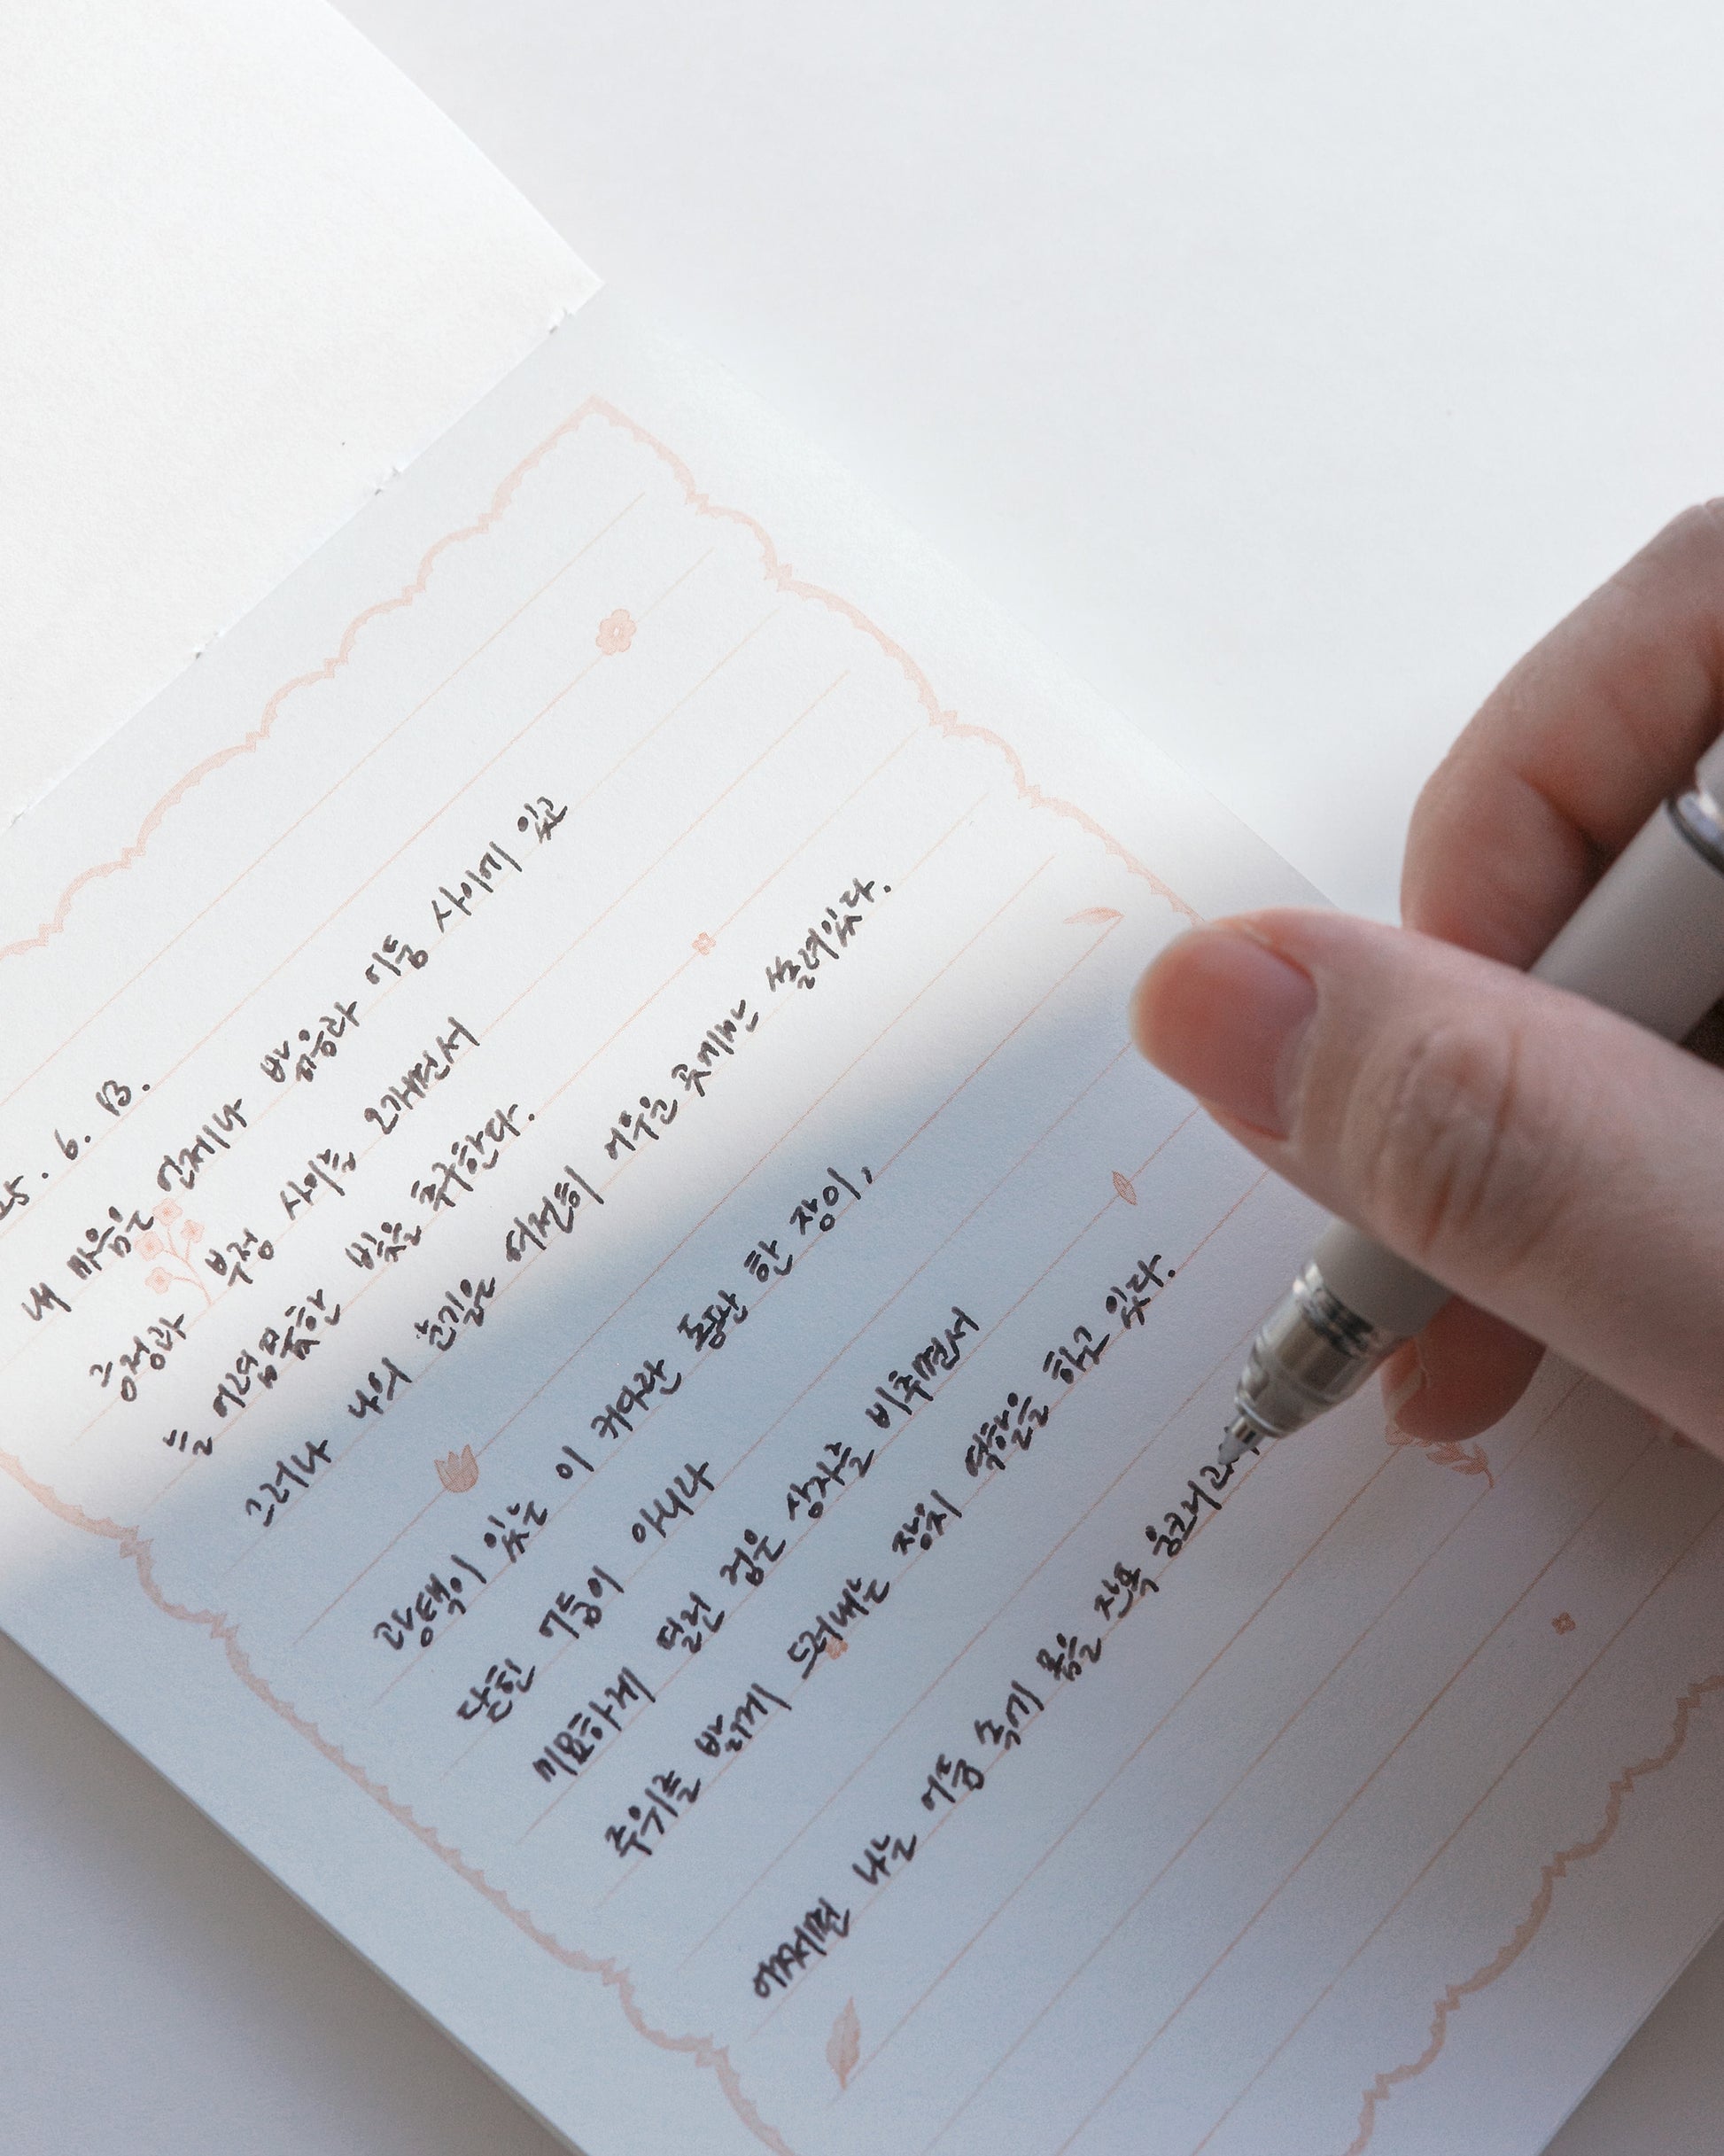 25. 6. 13.
내 마음은 언제나 밝음과 어둠 사이에 있고
긍정과 부정 사이를 오가면서
늘 어렴풋한 빛을 추구한다.
그러나 나의 눈길은 여전히 어두운 곳에만 쏠려있다.
광택이 있는 이 커다란 통판 한 장이,
단힌 기둥이 아니라
미묘하게 열린 검은 상자를 비추면서
주위를 밝게 드러내는 장치 역할을 하고 있다.
어쩌면 나는 어둠 속에 몸을 잔뜩